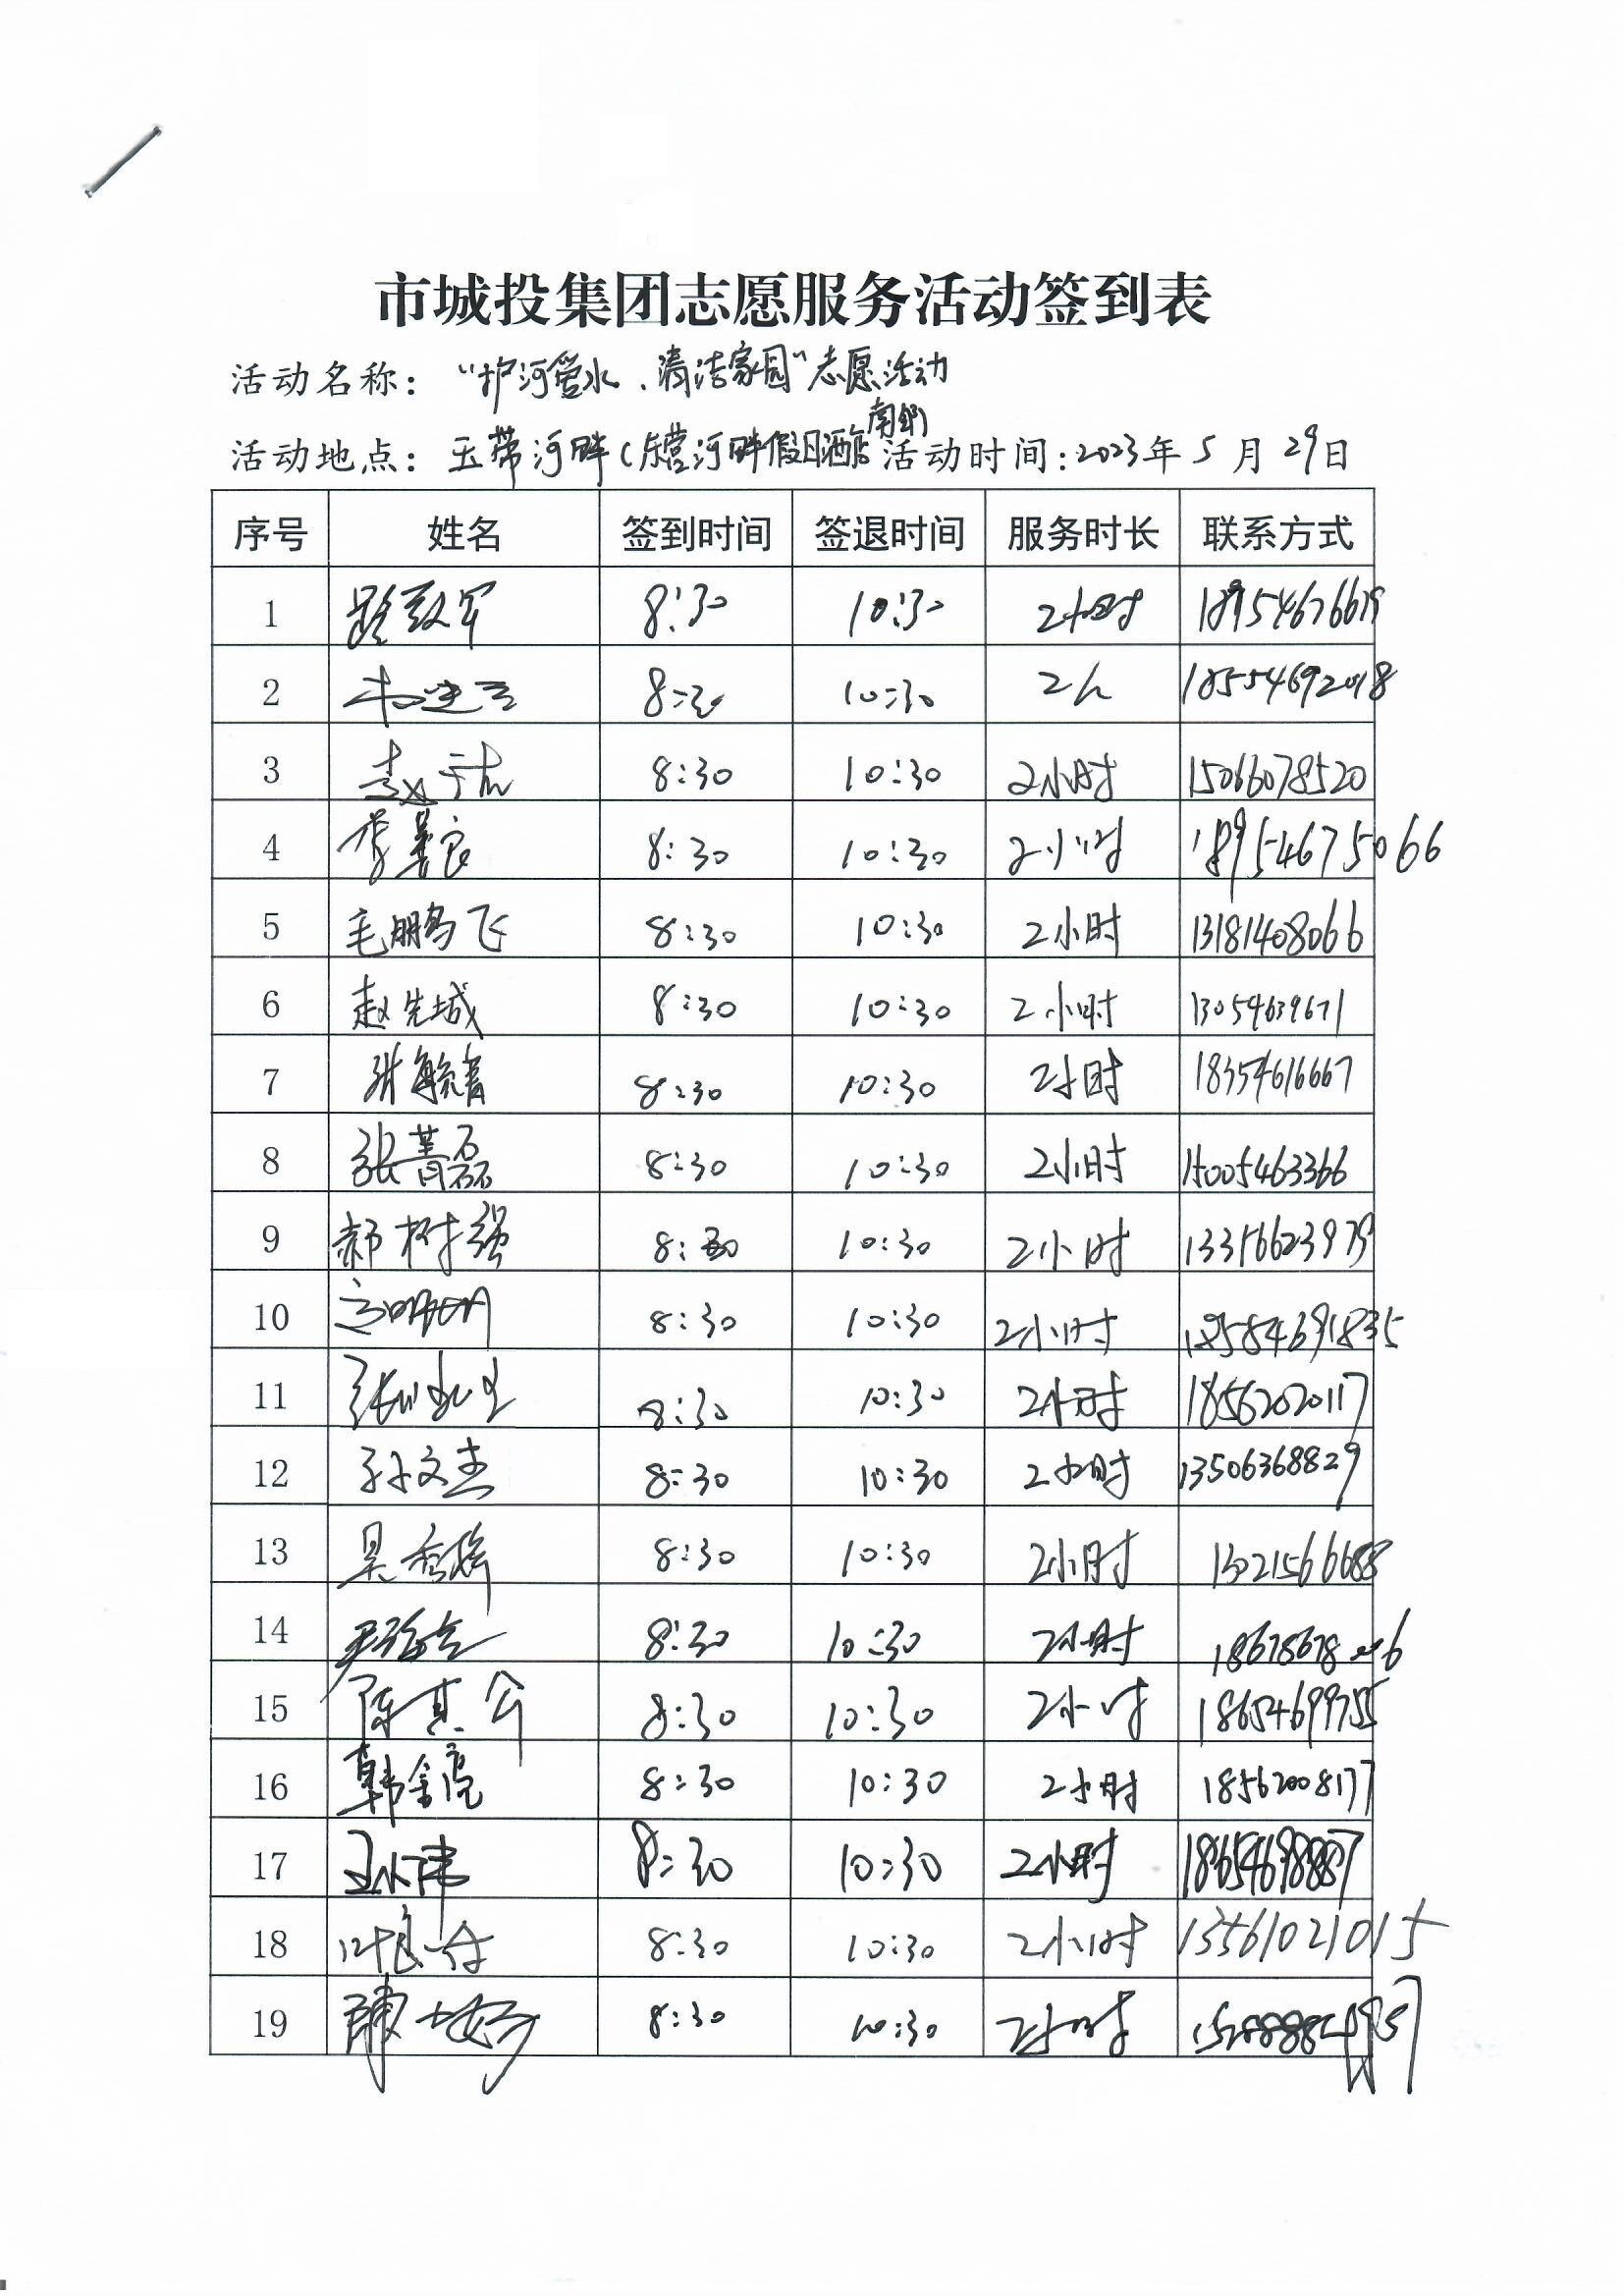 市城投集团志愿服务活动签到表
活动名称： “护河管水、清洁家园”志愿活动
活动地点： 玉带河畔（东营河畔假日酒店南邻 活动时间：2023年5月29日
序号 姓名 签到时间 签退时间 服务时长 联系方式
1 8:30 10:30 2小时 18954676619
2 8:30 10:30 2h 18554692018
3 赵 8:30 10:30 2小时 15066078520
4 李善良 8:30 10:30 2小时 18954675066
5 毛鹏飞 8:30 10:30 2小时 13181408066
6 赵先城 8:30 10:30 2小时 13054639671
7 张毓菁 8:30 10:30 2小时 18354616667
8 张菁磊 8:30 10:30 2小时 15005463366
9 郝树强 8:30 10:30 2小时
10 8:30 10:30 2小时
11 8:30 10:30 2小时 18562020117
12 孙文杰 8:30 10:30 2小时 13506368829
13 吴秀梅 8:30 10:30 2小时
14 8:30 10:30 2小时
15 陈其 8:30 10:30 2小时 18654699755
16 韩金亮 8:30 10:30 2小时 18562008177
17 王小伟 8:30 10:30 2小时 18654698887
18 8:30 10:30 2小时 13561021015
19 8:30 10:30 2小时